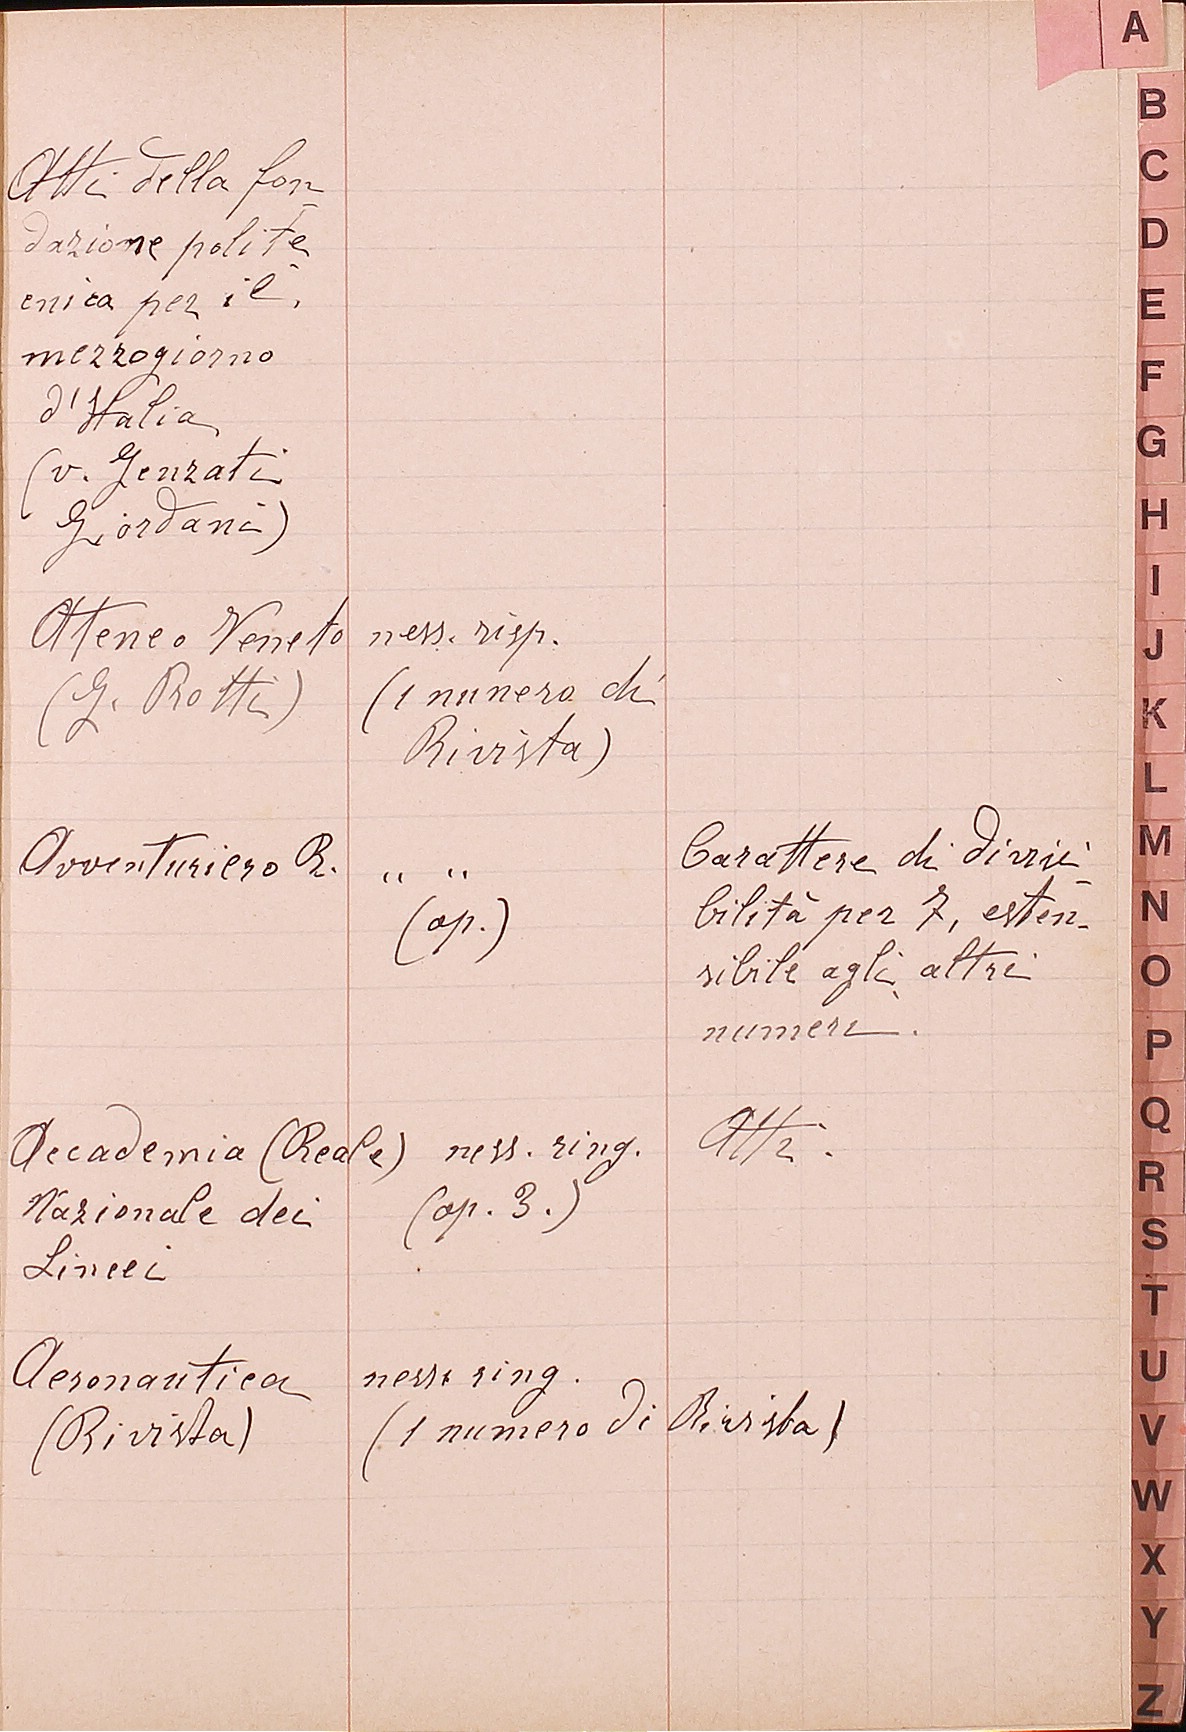 A
Atti della fon
dazione polite
cnica per il
mezzogiorno
d'Italia
(v. Genzati
Giordani)
Ateneo Veneto ness. risp.
(G. Rotti) (1 numero di
Rivista)
Avventuriero R. „ „ Carattere di divisi
(op.) bilità per 7, esten-
sibile agli altri
numeri.
Accademia (Reale) ness. ring. Atti.
Nazionale dei (op. 3.)
Lincei
Aeronautica ness. ring.
(Rivista) (1 numero di Rivista)
B
C
D
E
F
G
H
I
J
K
L
M
N
O
P
Q
R
S
T
U
V
W
X
Y
Z